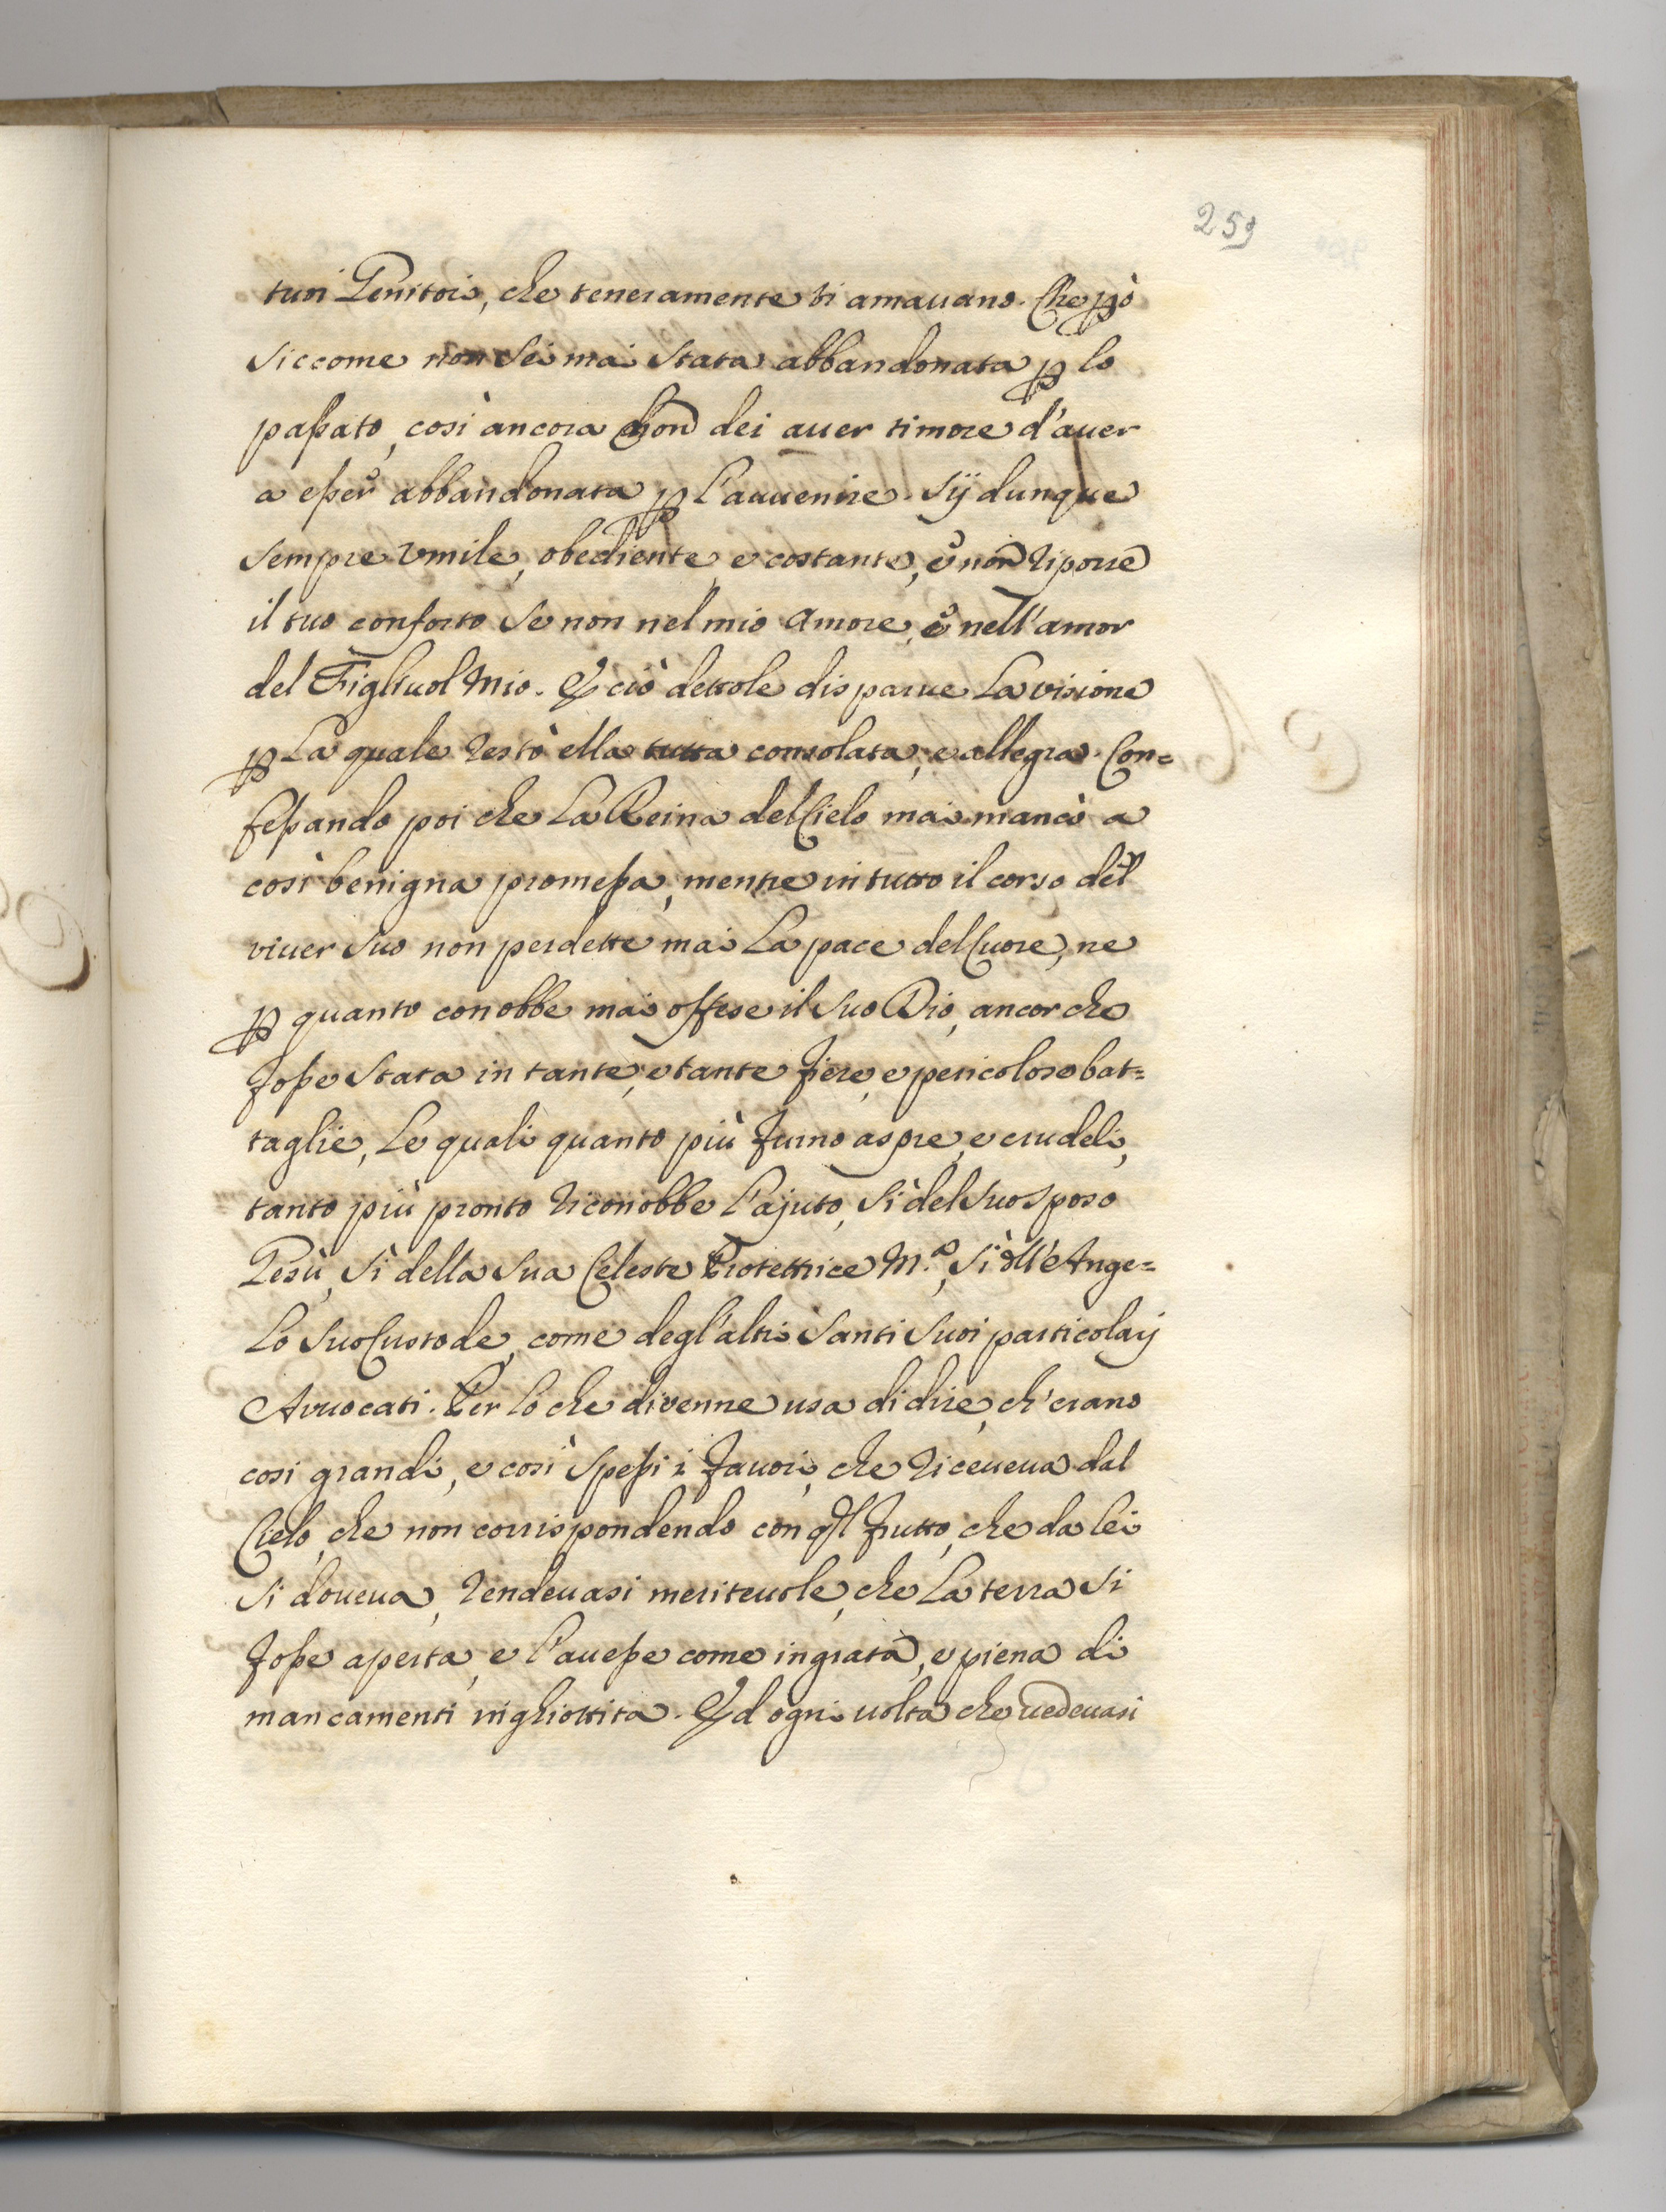 259
tuoi Genitori, che teneramente ti amauano. Che ꝑò
siccome non sei mai stata abbandonata ꝑ lo
passato, così àncora non dei auer timore d'auer
a esser abbandonata ꝑ l'auuenire. Sÿ dunque
sempre vmile, obediente, e costante, e non riporre
il tuo conforto se non nel mio Amore, e nell'amor
del Figliuol Mio. E ciò dettole disparue la visione
ꝑ la quale restò ella tutta consolata, e allegra. Con=
fessando poi che la Reina del Cielo mai mancò a
così benigna promessa, mentre in tutto il corso del
viuer suo non perdette mai la pace del Cuore, ne
ꝑ quanto conobbe mai offese il suo Dio, ancor che
fosse stata in tante, e tante fiere, e pericolose bat=
taglie, le quali quanto più furno aspre, e crudeli,
tanto più pronto riconobbe l'ajuto, sì del suo sposo
Gesù, sì della sua Celeste Protettrice M.ª, sì dll'Ange=
lo suo Custode, come degl'altri Santi suoi particolarj
Avuocati. Per lo che divenne usa di dire, ch'erano
così grandi, e così spessi i fauori, che riceueua dal
Cielo, che non corrispondendo con ql frutto, che da lei
si doueua, rendeuasi meriteuole, che la terra si
fosse aperta, e l'auesse come ingrata, e piena di
mancamenti inghiottita. Ed ogni uolta che uedeuasi